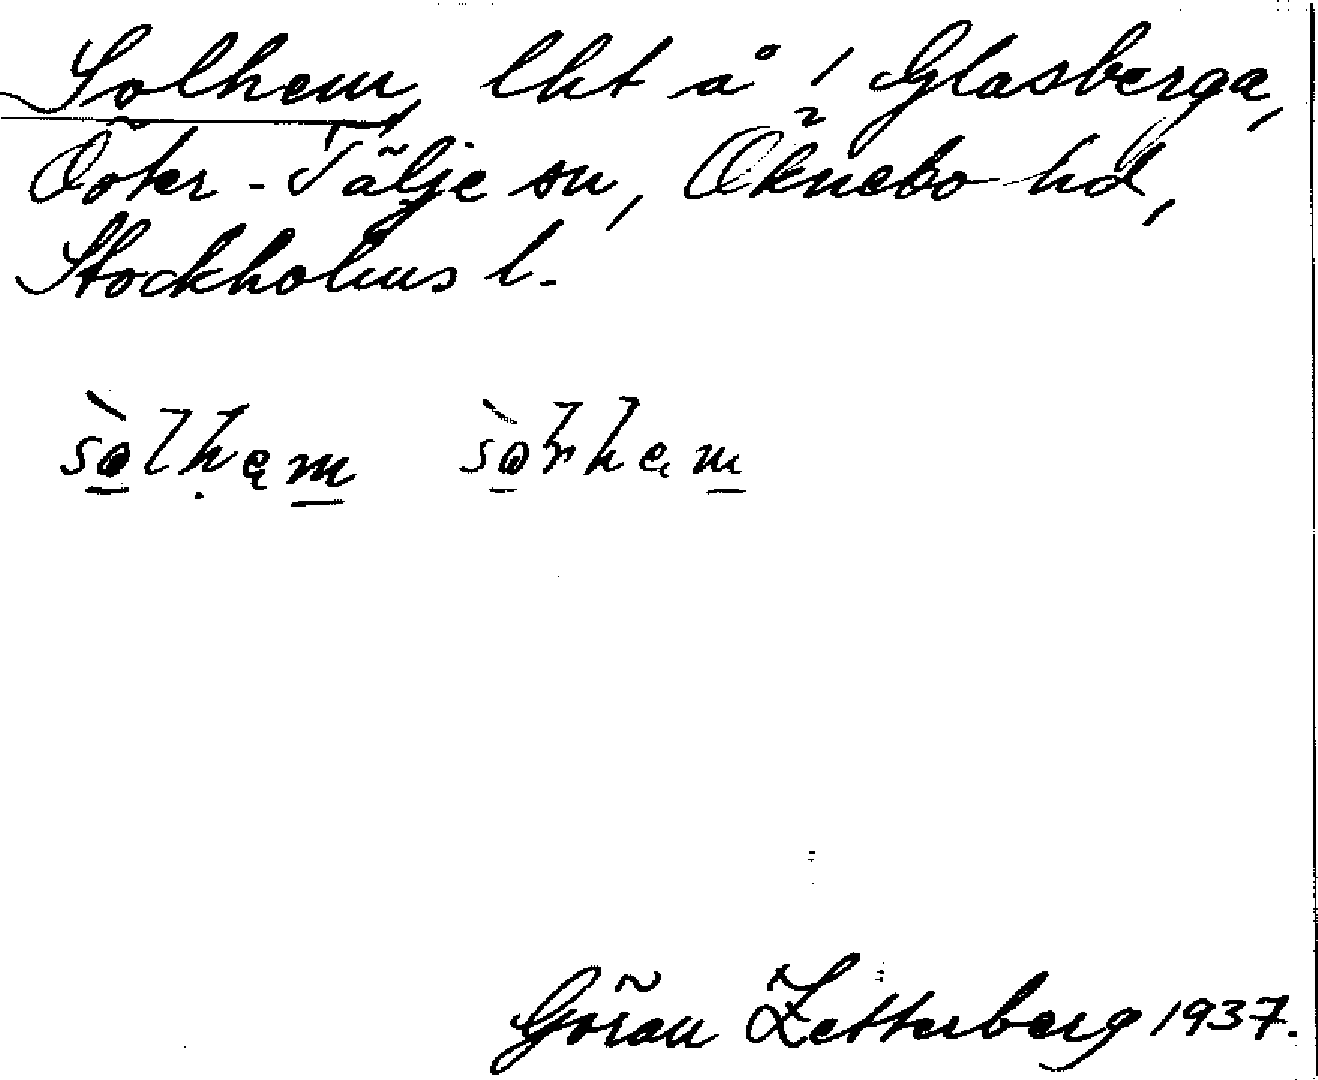 Solhem, lht å 1 Glasberga,
Öster-Tälje sn, Öknebo hd,
Stockholms l.
Göran Zetterberg 1937.